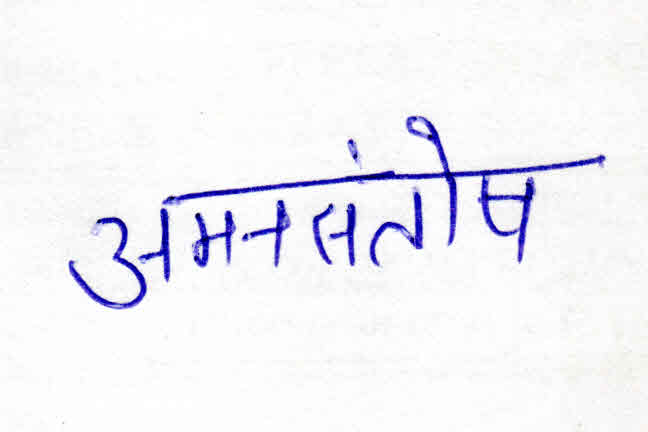 अमनसंतोष